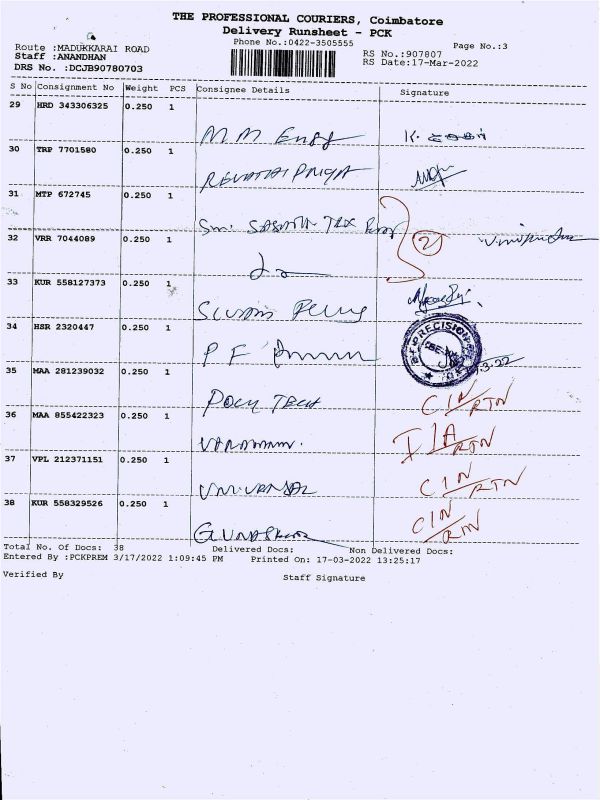 THE PROFESSIONAL COURIERS, Coimbatore
Delivery Runsheet - PCK
Phone No.:0422-3505555
Page No.:3
Route :MADUKKARAI ROAD
RS No.:907807
Staff :ANANDHAN
RS Date:17-Mar-2022
DRS No. :DCJB90780703
S No Consignment No Weight PCS Consignee Details Signature
29 HRD 343306325 0.250 1
M M Engg
30 TRP 7701580 0.250 1
REVATHI PRIYA
31 MTP 672745 0.250 1
Sri SASTHA TEX
2
32 VRR 7044089 0.250 1
33 KUR 558127373 0.250 1
34 HSR 2320447 0.250 1
PRECISION
P F
.3.22
35 MAA 281239032 0.250 1
POLY TECH CIN/RTN
36 MAA 855422323 0.250 1
I/A RTN
37 VPL 212371151 0.250 1
UNIVERSAL CIN/RTN
38 KUR 558329526 0.250 1
CIN/RTN
Total No. Of Docs: 38 Delivered Docs: Non Delivered Docs:
Entered By :PCKPREM 3/17/2022 1:09:45 PM Printed On: 17-03-2022 13:25:17
Verified By Staff Signature